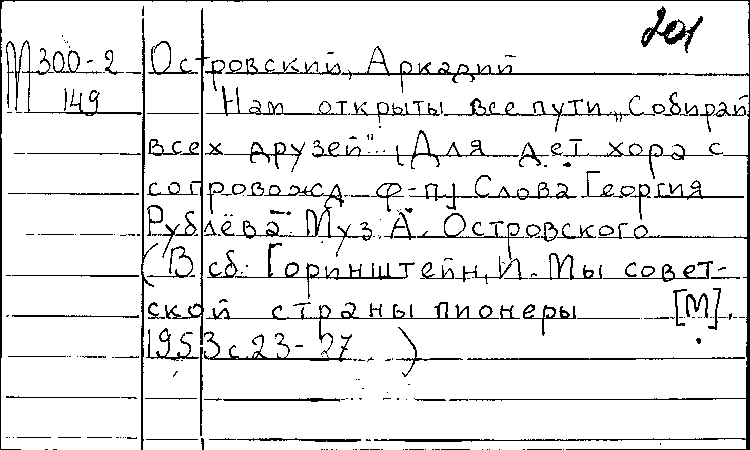 201
М 300-2 Островский, Аркадий
149 Нам открыты все пути „Собирай
всех друзей". [Для дет. хора с
сопровожд. ф-п] Слова Георгия
Рублёва. Муз. А. Островского
(В сб. Горинштейн, И. Мы совет-
ской страны пионеры [М].
1953 с. 23-27.)